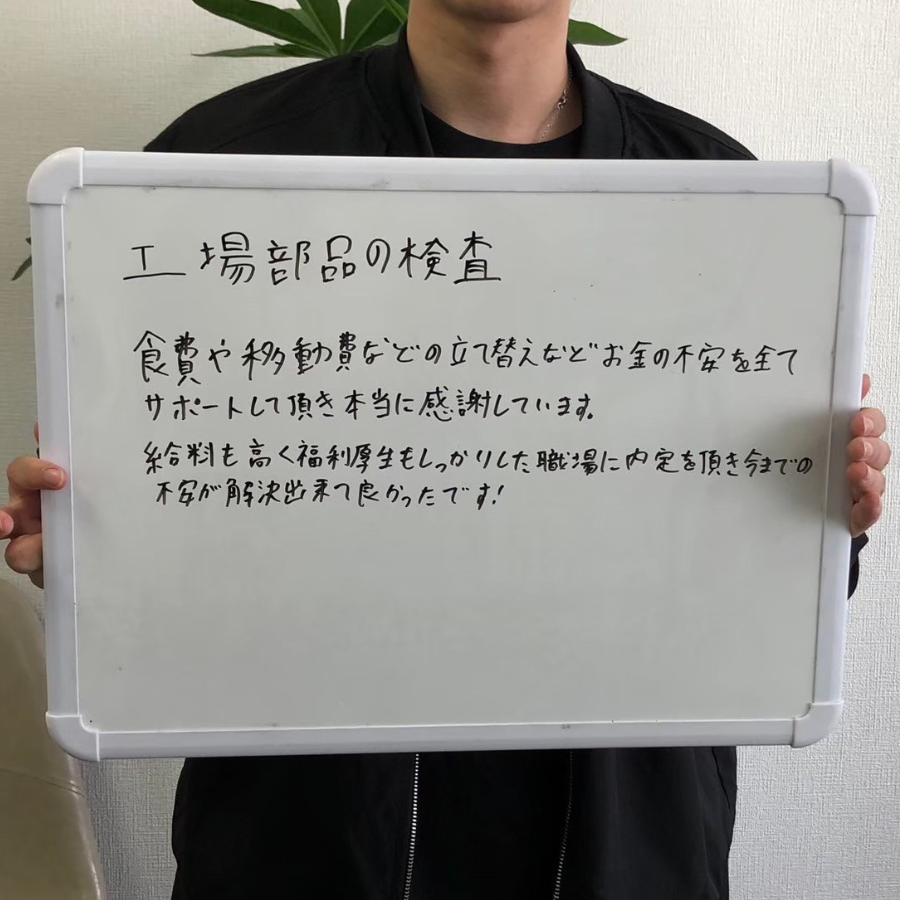 工場部品の検査
食費や移動費などの立て替えなどお金の不安を全て
サポートして頂き本当に感謝しています。
給料も高く福利厚生もしっかりした職場に内定を頂き今までの
不安が解決出来て良かったです!